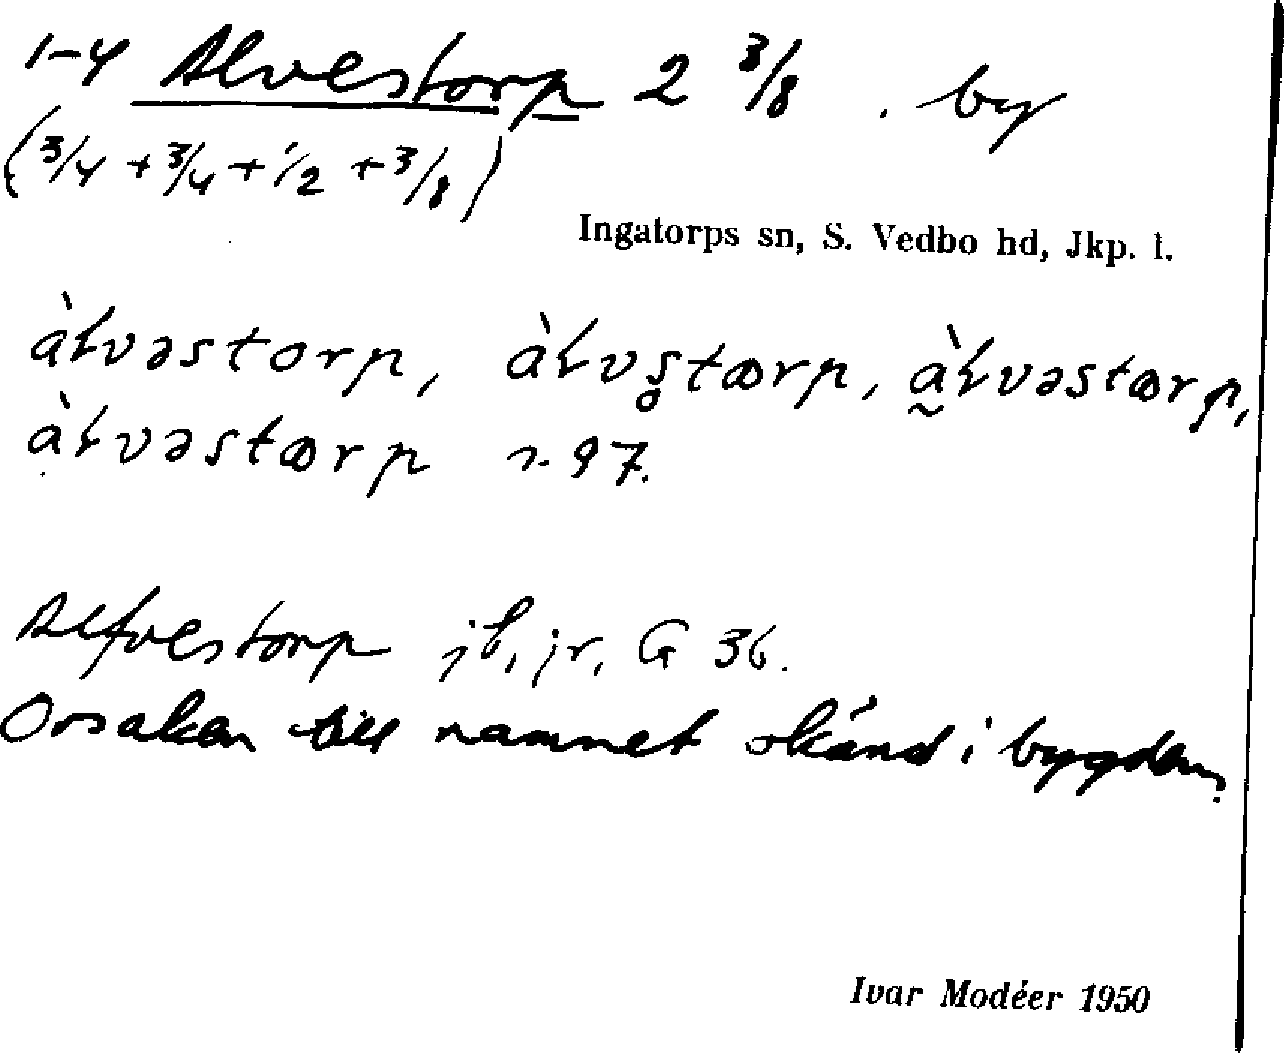 1-4 Alvestorp 2 3/8 . by
(3/4 + 3/4 + 1/2 + 3/8)
Ingatorps sn, S. Vedbo hd, Jkp. l.
àƚvəstorp, àƚvs̥tꝏrp, à̰ƚvəstꝏrp,
àƚvəstꝏrp r. 97.
Alfvestorp jb, jr, G 36.
Orsaken till namnet okänd i bygden.
Ivar Modéer 1950